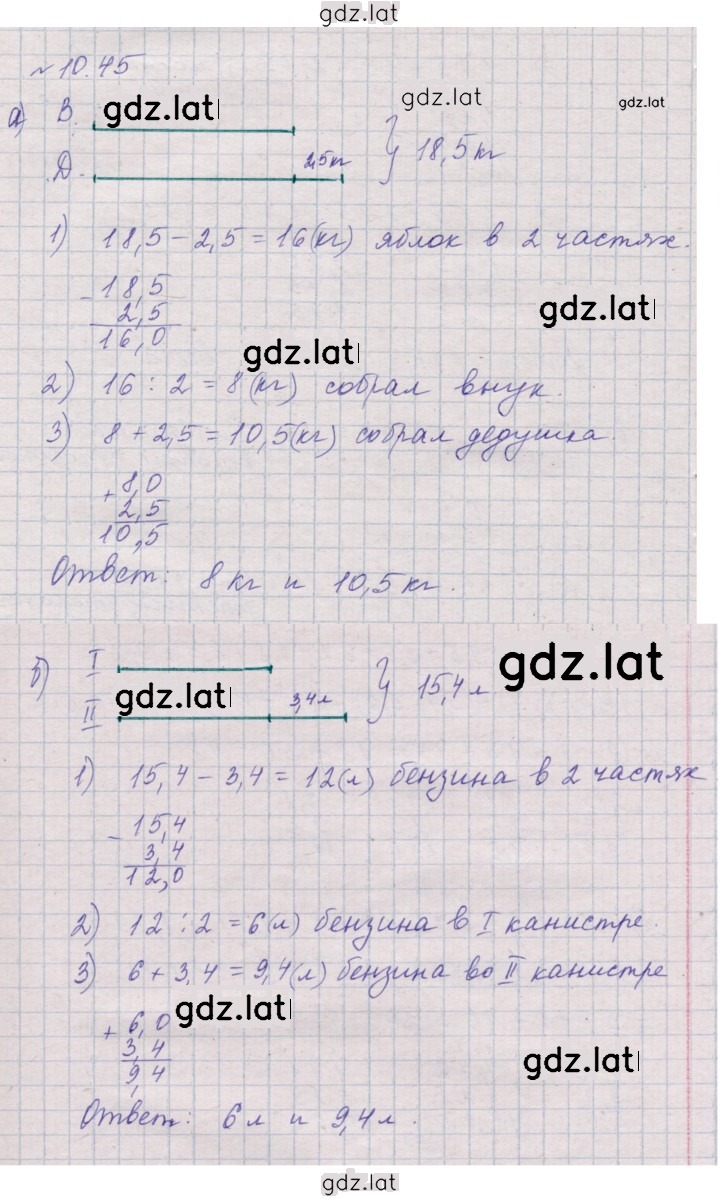 gdz.lat
№ 10.45
а) В. gdz.lat
gdz.lat
gdz.lat
Д. 2,5 кг } 18,5 кг
1) 18,5 – 2,5 = 16 (кг) яблок в 2 частях.
- 18,5
2,5
16,0
gdz.lat
gdz.lat
2) 16 : 2 = 8 (кг) собрал внук.
3) 8 + 2,5 = 10,5 (кг) собрал дедушка.
+ 8,0
2,5
10,5
Ответ: 8 кг и 10,5 кг.
б) I
gdz.lat
gdz.lat
II 3,4 л } 15,4 л
1) 15,4 – 3,4 = 12 (л) бензина в 2 частях
- 15,4
3,4
12,0
2) 12 : 2 = 6 (л) бензина в I канистре.
3) 6 + 3,4 = 9,4 (л) бензина во II канистре
gdz.lat
+ 6,0
3,4
9,4
gdz.lat
Ответ: 6 л и 9,4 л.
gdz.lat